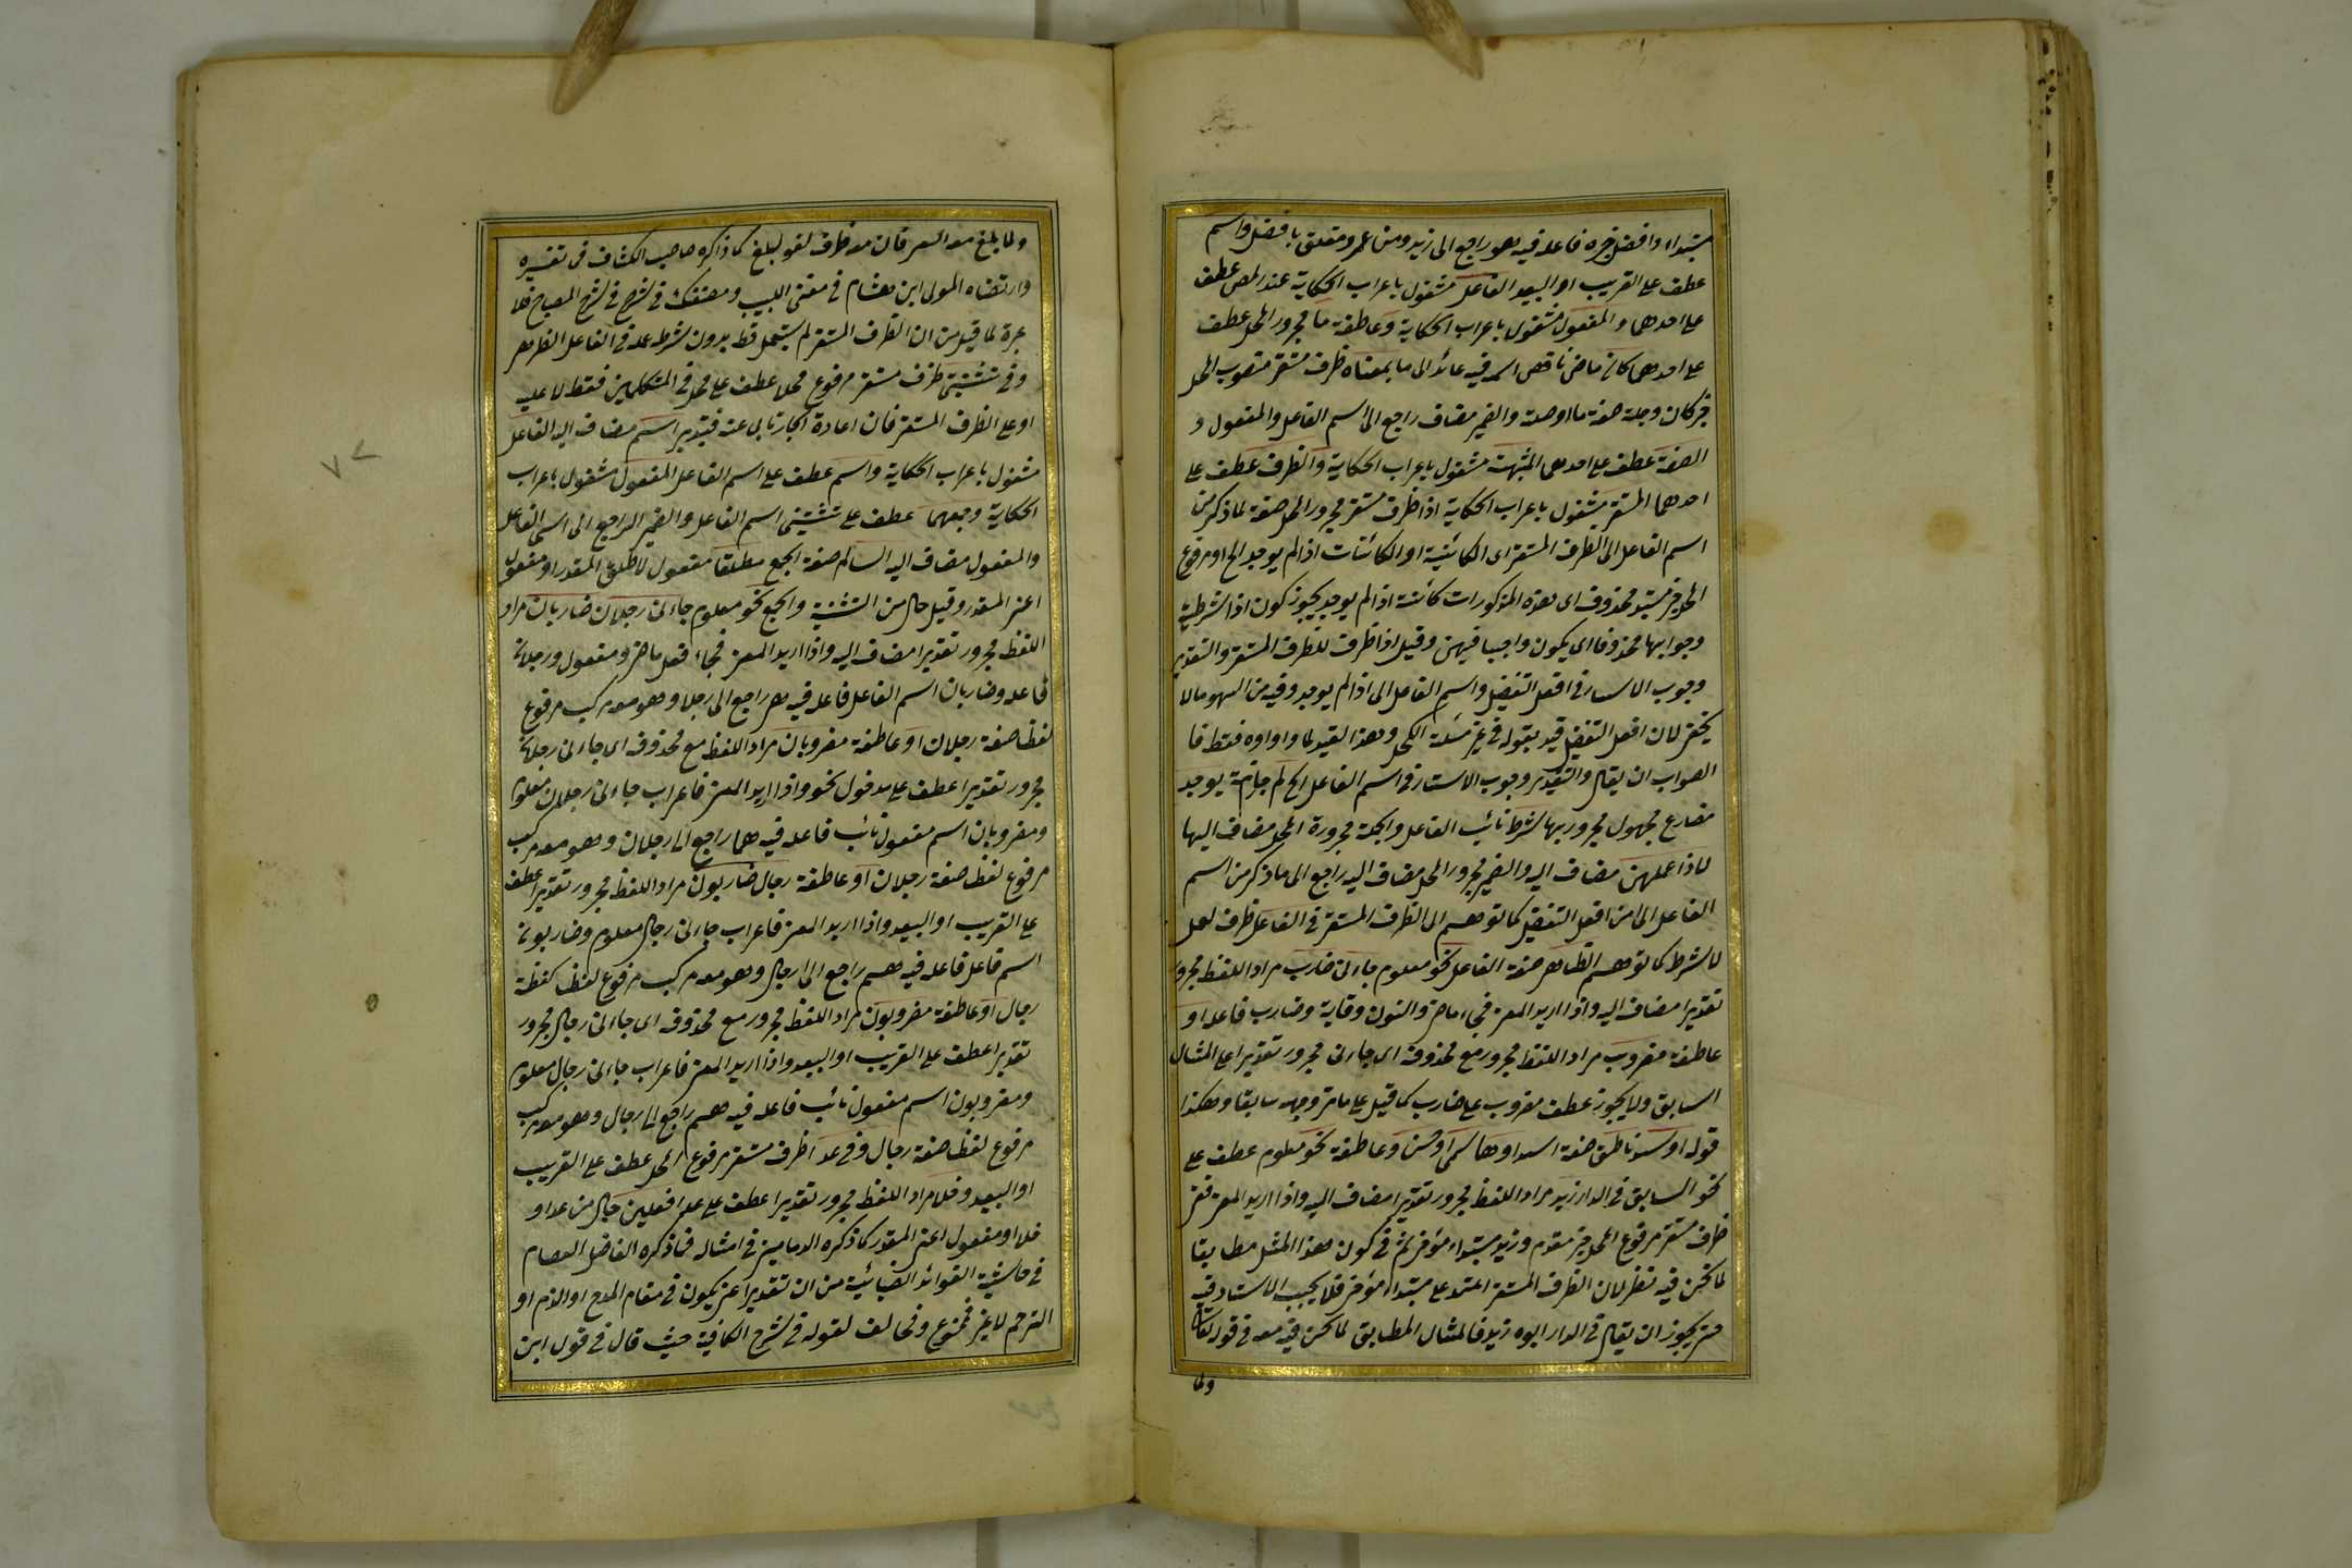 مبتداء وافضل خبره فاعله فيه هو راجع الى زيد ومن عمرو متعلق بافضل واسم
عطف على القريب او البعيد الفاعل مشغول باعراب الحكاية عند المص عطف
على احدهما والمفعول مشغول باعراب الحكاية وعاطفة ما مجرور المحل عطف
على احدهما كان ماض ناقص اسمه فيه عائد الى ما بمعناه ظرف مستقر منصوب المحل
خبر كان وجملة صفة ما او صلة والضمير مضاف راجع الى اسم الفاعل والمفعول و
الصفة عطف على احدهما المشبهة مشغول باعراب الحكاية والظرف عطف على
احدهما المستقر مشغول باعراب الحكاية اذا ظرف مستقر مجرور المحل صفة لما ذكر من
اسم الفاعل الى الظرف المستقر اى الكائنية او الكائنات اذا لم يوجد الخ او مرفوع
المحل خبر مبتدا محذوف اى هذه المذكورات كائنة اذا لم يوجد يجوز كون اذا شرطية
وجوابها محذوفا اى يكون واجبا فيهن وقيل اذا ظرف للظرف المستقر والتقدير
وجوب الاستتار فى افعل التفضيل واسم الفاعل الى اذا لم يوجد وفيه من السهو مالا
يخفى لان افعل التفضيل قيد بقوله فى غير مسئلة الكحل وهذا القيد لما واواوه فقط فا
الصواب ان يقال والتقدير وجوب الاستتار فى اسم الفاعل الخ لم جازمة يوجد
مضارع مجهول مجزوم بها شرط نائب الفاعل والجملة مجرورة المحل مضاف اليها
لاذا عملهن مضاف اليه والضمير مجرور المحل مضاف اليه راجع الى ما ذكر من اسم
الفاعل الى من افعل التفضيل كما توهم الى الظرف المستقر فى الفاعل ظرف لعمل
لا شرط كما توهم الظاهر صفة الفاعل نحو معلوم جاءنى ضارب مراد اللفظ مجرور
تقديرا مضاف اليه واذا اريد المعنى فجاء ماض والنون وقاية وضارب فاعله او
عاطفة مضروب مراد اللفظ مجرور مع محذوفه اى جاءنى مجرور تقديرا على المثال
السابق ولا يجوز عطف مضروب على ضارب كما قيل على ما مر وجهه سابقا وهكذا
قوله او اسد ناطق صفة اسد او هاشمى او حسن وعاطفة نحو معلوم عطف على
نحو السابق فى الدار زيد مراد اللفظ مجرور تقديرا مضاف اليه واذا اريد المعنى ففى
ظرف مستقر مرفوع المحل خبر مقدم وزيد مبتداء مؤخر ثم فى كون هذا المثل مطابقا
لما نحن فيه نظر لان الظرف المستقر اعتمد على مبتداء مؤخر فلا يجب الاستتار فيه
حتى يجوز ان يقال فى الدار ابوه زيد فالمثال المطابق لما نحن فيه معه فى قوله تعالى
ولما
ولما بلغ معه السعى فان معه ظرف لغو لبلغ كما ذكره صاحب الكشاف فى تفسيره
وارتضاه المولى ابن هشام فى مغنى اللبيب ومصنفك فى شرح المصباح فلا
عبرة لما قيل من ان الظرف المستقر لم يستعمل قط بدون شرط عمله فى الفاعل الظاهر
وفى تثنيتى ظرف مستقر مرفوع محلا عطف على محل فى المتكلمين فقط لا عليه
او على الظرف المستقر فان اعادة الجار تابى عنه فتدبر اسم مضاف اليه الفاعل
مشغول باعراب الحكاية واسم عطف على اسم الفاعل المفعول مشغول باعراب
الحكاية وجمعهما عطف على تثنيتى اسم الفاعل والضمير الراجع الى اسمى الفاعل
والمفعول مضاف اليه السالم صفة الجمع مطلقا مفعول لاطلق المقدر او مفعول
اعنى المقدر وقيل حال من التثنية والجمع نحو معلوم جاءنى رجلان ضاربان مراد
اللفظ مجرور تقديرا مضاف اليه واذا اريد المعنى فجاء فعل ماض ومفعول ورجلان
فاعله وضاربان اسم الفاعل فاعله فيه هما راجع الى رجلا وهو معه مركب مرفوع
لفظا صفة رجلان او عاطفة مضروبان مراد اللفظ مع محذوفه اى جاءنى رجلان
مجرور تقديرا عطف على مدخول نحو واذا اريد المعنى فاعراب جاءنى رجلان معلوم
ومضروبان اسم مفعول نائب فاعله فيه هما راجع الى رجلان وهو معه مركب
مرفوع لفظا صفة رجلان او عاطفة رجال ضاربون مراد اللفظ مجرور تقديرا عطف
على القريب او البعيد واذا اريد المعنى فاعراب جاءنى رجال معلوم وضاربون
اسم فاعل فاعله فيه هم راجع الى رجال وهو معه مركب مرفوع لفظا صفة
رجال او عاطفة مضروبون مراد اللفظ مجرور مع محذوفه اى جاءنى رجال مجرور
تقديرا عطف على القريب او البعيد واذا اريد المعنى فاعراب جاءنى رجال معلوم
ومضروبون اسم مفعول نائب فاعله فيه هم راجع الى رجال وهو معه مركب
مرفوع لفظا صفة رجال وفى عدا ظرف مستقر مرفوع المحل عطف على القريب
او البعيد وخلا مراد اللفظ مجرور تقديرا عطف على عدا فعلين حال من عدا و
خلا او مفعول اعنى المقدر كما ذكره الدمامينى فى امثاله فما ذكره الفاضل العصام
فى حاشية الفوائد الضيائية من ان تقدير اعنى يكون فى مقام المدح او الذم او
الترحم لا غير فممنوع ومخالف لقوله فى شرح الكافية حيث قال فى قول ابن